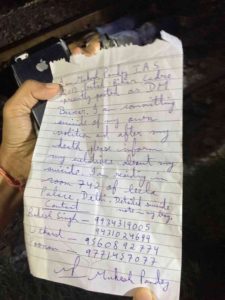 I Mukesh Pandey IAS
batch Bihar cadre
posted as DM
Buxar. I am committing
suicide of my own
volition and after my
death please inform
my relatives about my
suicide. I
room 742 of Leela
Palace Delhi. Detailed suicide
Contact note in my bag.
Singh - 9934319005
9431024694
9560892774
9771457077
Mukesh Pandey